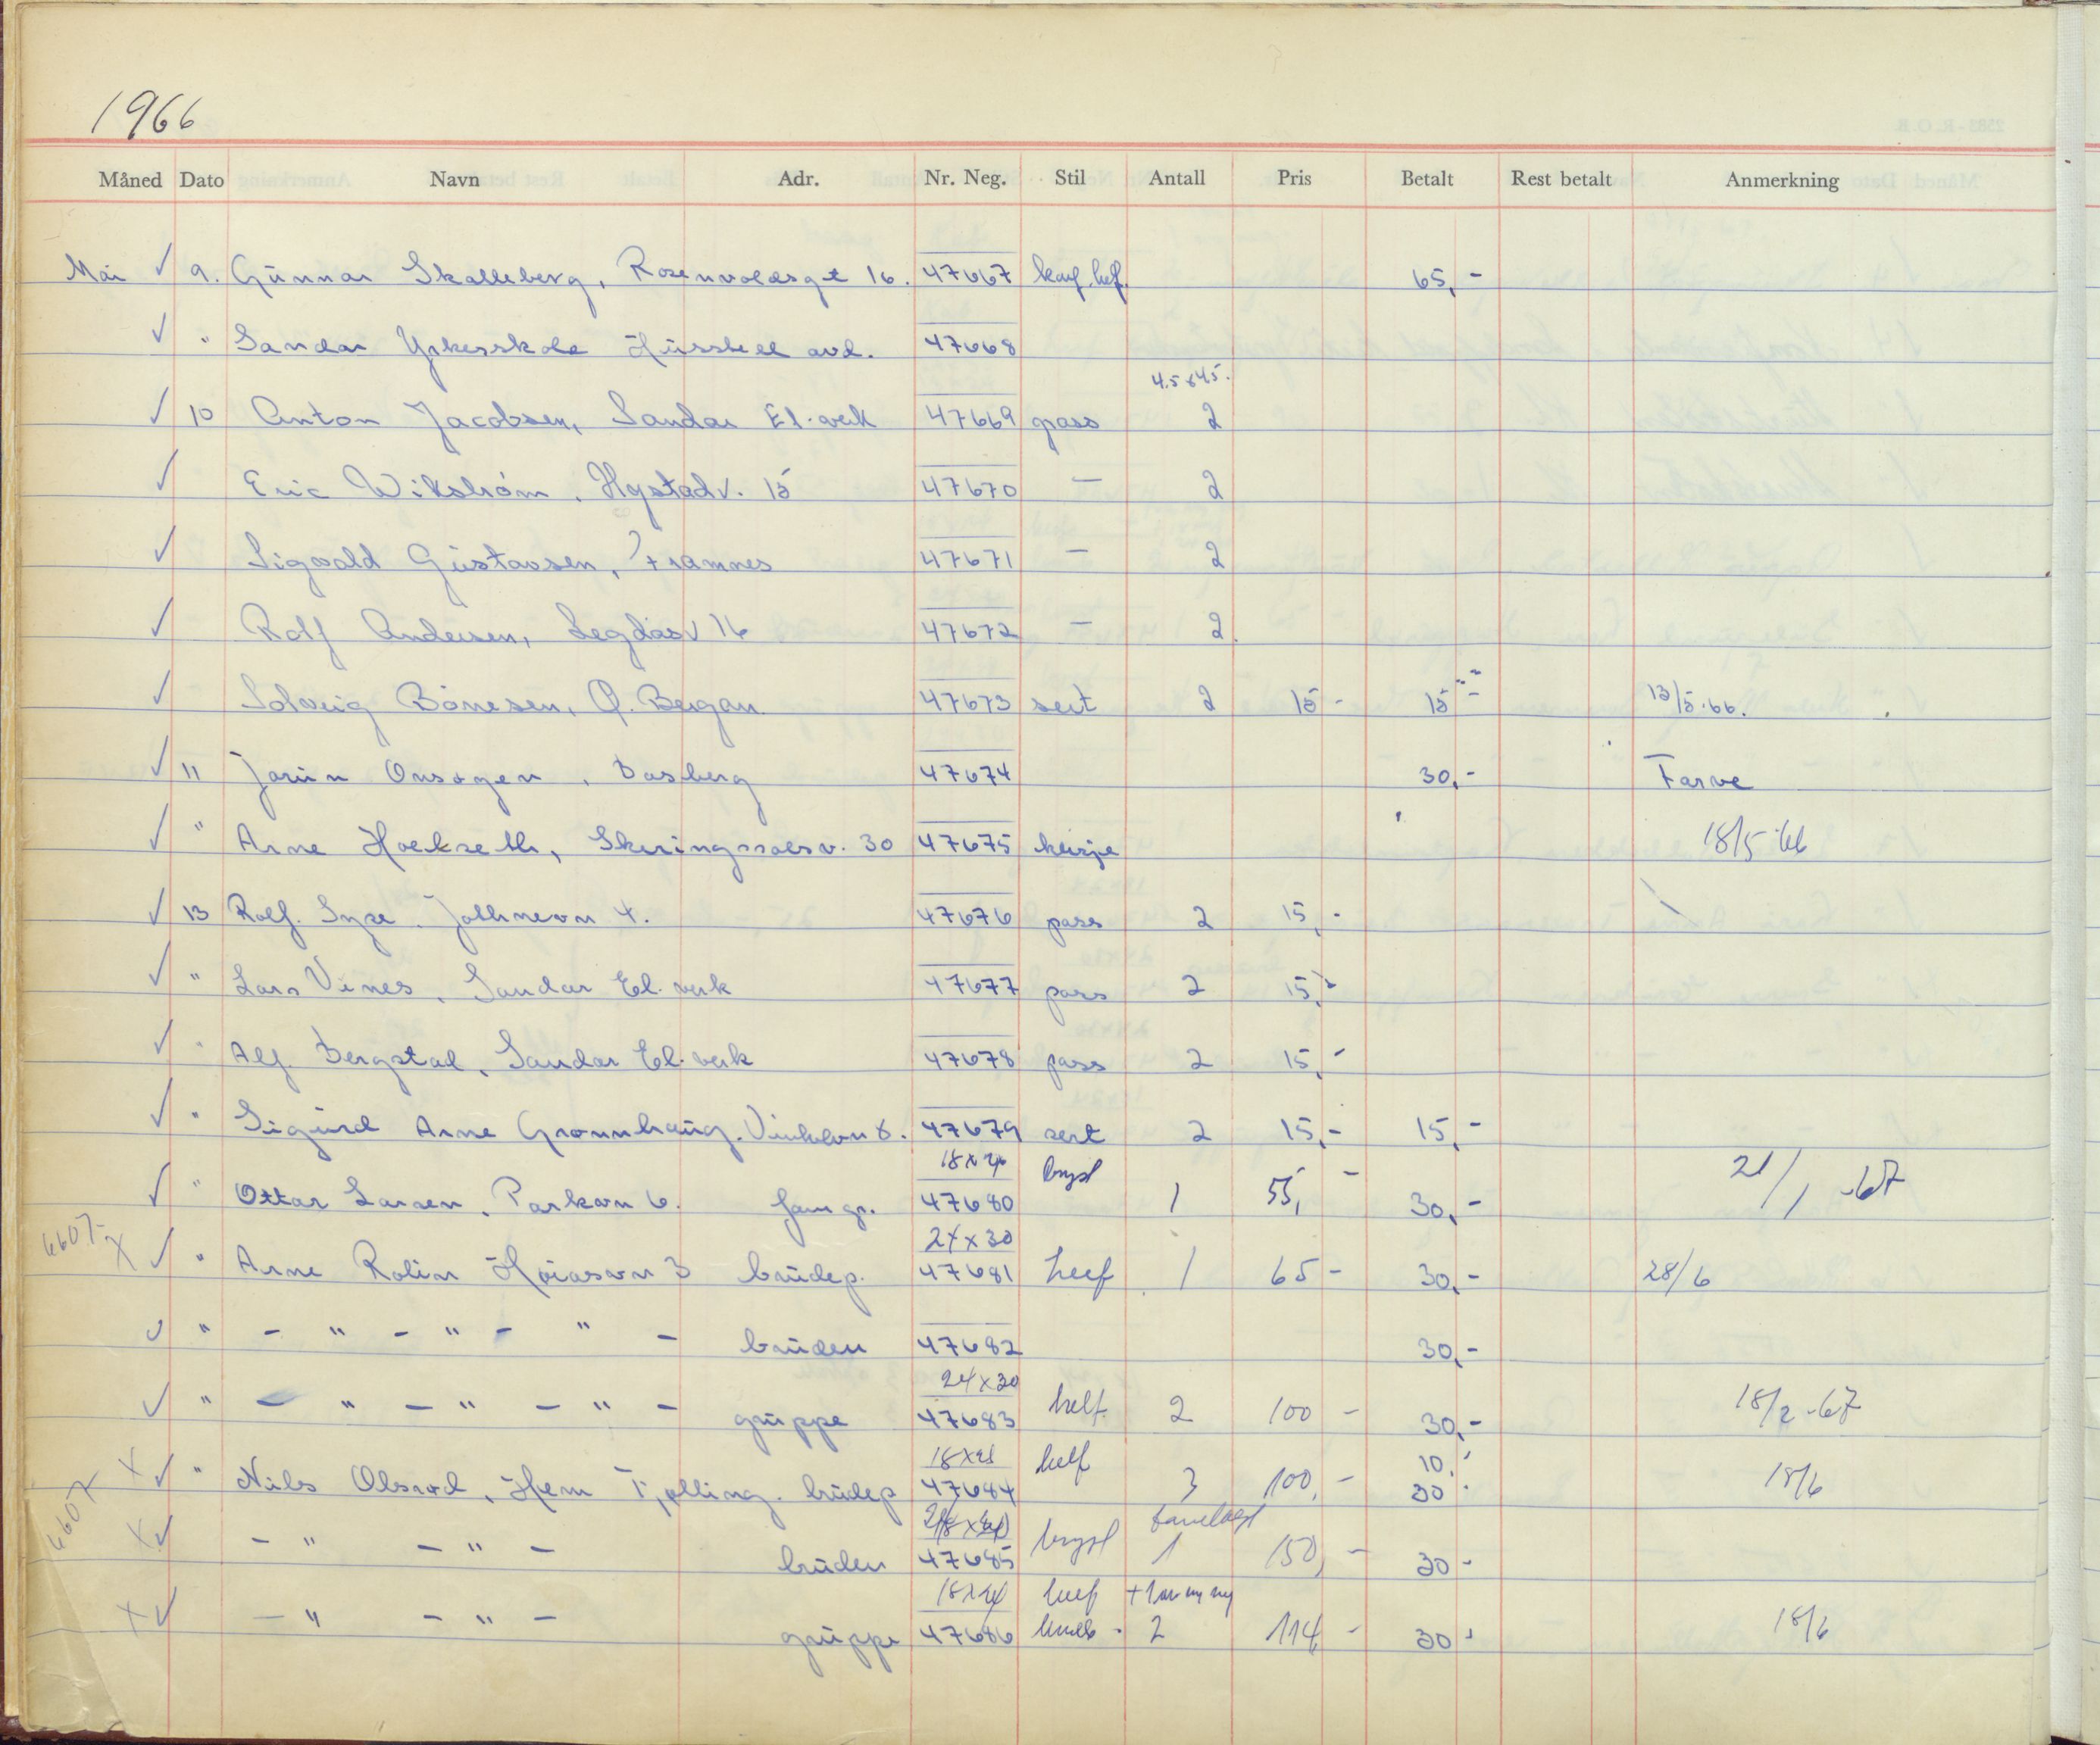 1966
Måned Dato Navn Adr. Nr. Neg. Stil Antall Pris Betalt Rest betalt Anmerkning
Mai ✓ 9. Gunnar Skalleberg, Rosenvoldsgt 16. 47667 65,-
✓ " Sandar Yrkesskole Husstell avd. 47668
4.5x4.5.
✓ 10 Anton Jacobsen, Sandar El.verk 47669 pass 2
✓ Eric Wikstrøm, Hystadv. 15 47670 — 2
✓ Sigvald Gustavsen, Framnes 47671 — 2
✓ Rolf Andersen, 16 47672 — 2.
✓ Solveig Bönesen, Ø. Bergan. 47673 sert 2 15- 15- 13/5.66.
✓ 11 Jorun Onsøgen, Basberg 47674 30,- Farve
✓ " Arne Hoelseth, Skiringssalsv. 30 47675 18/5-66
✓ 13 Rolf. Syre. 4. 47676 pass 2 15,-
✓ " Lars Vines, Sandar El.verk 47677 pass 2 15,-
✓ " Alf. Bergstad, Sandar El.verk 47678 pass 2 15,-
✓ " Sigurd Arne Grønnhaug. 8. 47679 sert 2 15,- 15,-
18x24 bryst
✓ " Ottar Larsen, Parkvn 6. fam gr. 47680 1 55,- 30,- 21/1-67
6607- X 24x30
✓ " Arne Rolin 3 brudep. 47681 helf 1 65- 30,- 28/6
✓ " - " - " - " - bruden 47682 30,-
24x30
✓ " - " - " - " - gruppe 47683 helf. 2 100- 30,- 18/2-67
18x24 helf 10,-
X ✓ " Nils Olsrød, Hem Tjølling. brudep 47684 3 100,- 30- 18/6
6607
X ✓ - " - " - bruden 47685 bryst 1 150,- 30-
18x24 helf
X ✓ - " - " - gruppe 47686 2 114- 30- 18/6